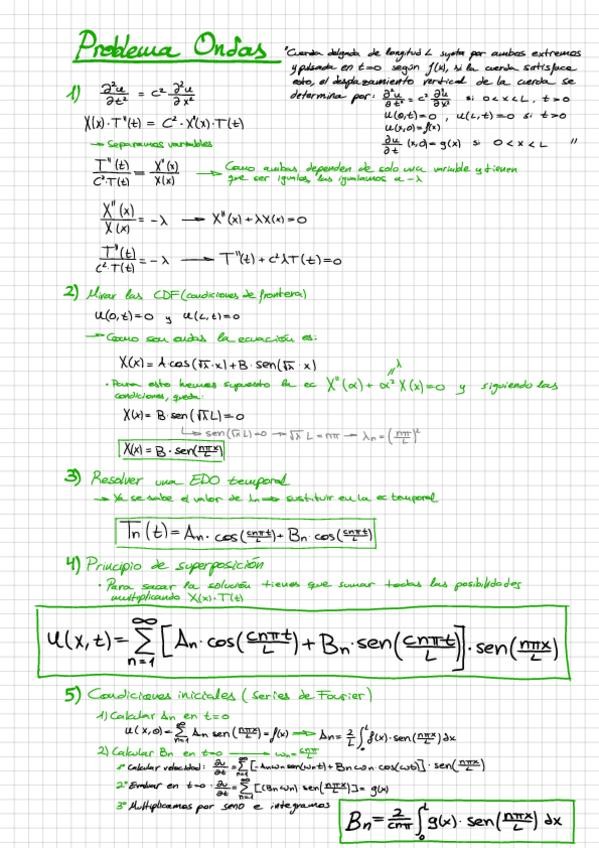 Problema Ondas
"Cuerda delgada de longitud L sujeta por ambos extremos
y pulsada en t=0 según f(x), si la cuerda satisface
esto, el desplazamiento vertical de la cuerda se
determina por: ∂²u/∂t² = c² ∂²u/∂x² si 0<x<L, t>0
u(0,t)=0, u(L,t)=0 si t>0
u(x,0)=f(x)
∂u/∂t (x,0)=g(x) si 0<x<L "
1) ∂²u/∂t² = c² ∂²u/∂x²
X(x)·T''(t) = C²·X''(x)·T(t)
→ Separamos variables
T''(t)/C²·T(t) = X''(x)/X(x) → Como ambas dependen de solo una variable y tienen
que ser iguales, las igualamos a -λ
X''(x)/X(x) = -λ → X''(x)+λX(x)=0
T''(t)/C²·T(t) = -λ → T''(t)+c²λT(t)=0
2) Mirar las CDF (condiciones de frontera)
u(0,t)=0 y u(L,t)=0
→ Como son ondas la ecuación es:
X(x)= A·cos(√λ·x)+B·sen(√λ·x)
λ
• Para esto hemos supuesto la ec X''(α)+α²X(x)=0 y siguiendo las
condiciones, queda:
X(x)= B·sen(√λL)=0
↳ sen(√λL)=0 → √λL=nπ → λn=(nπ/L)²
X(x)= B·sen(nπx/L)
3) Resolver una EDO temporal
→ Ya se sabe el valor de λn ⇒ sustituir en la ec temporal
Tn(t)= An·cos(cnπt/L)+Bn·cos(cnπt/L)
4) Principio de superposición
• Para sacar la solución tienes que sumar todas las posibilidades
multiplicando X(x)·T(t)
u(x,t)= ∞∑n=1 [An·cos(cnπt/L)+Bn·sen(cnπt/L)]·sen(nπx/L)
5) Condiciones iniciales (series de Fourier)
1) Calcular An en t=0
u(x,0)= ∞∑n=1 An sen(nπx/L)=f(x) → An= 2/L ∫₀ᴸ f(x)·sen(nπx/L)dx
2) Calcular Bn en t=0 → ωn= cnπ/L
1º Calcular velocidad: ∂u/∂t = ∞∑n=1 [-Anωn sen(ωnt)+Bnωn cos(ωt)]·sen(nπx/L)
2º Evaluar en t=0: ∂u/∂t = ∞∑n=1 [(Bnωn) sen(nπx/L)]= g(x)
3º Multiplicamos por seno e integramos
Bn= 2/cnπ ∫₀ᴸ g(x)·sen(nπx/L) dx